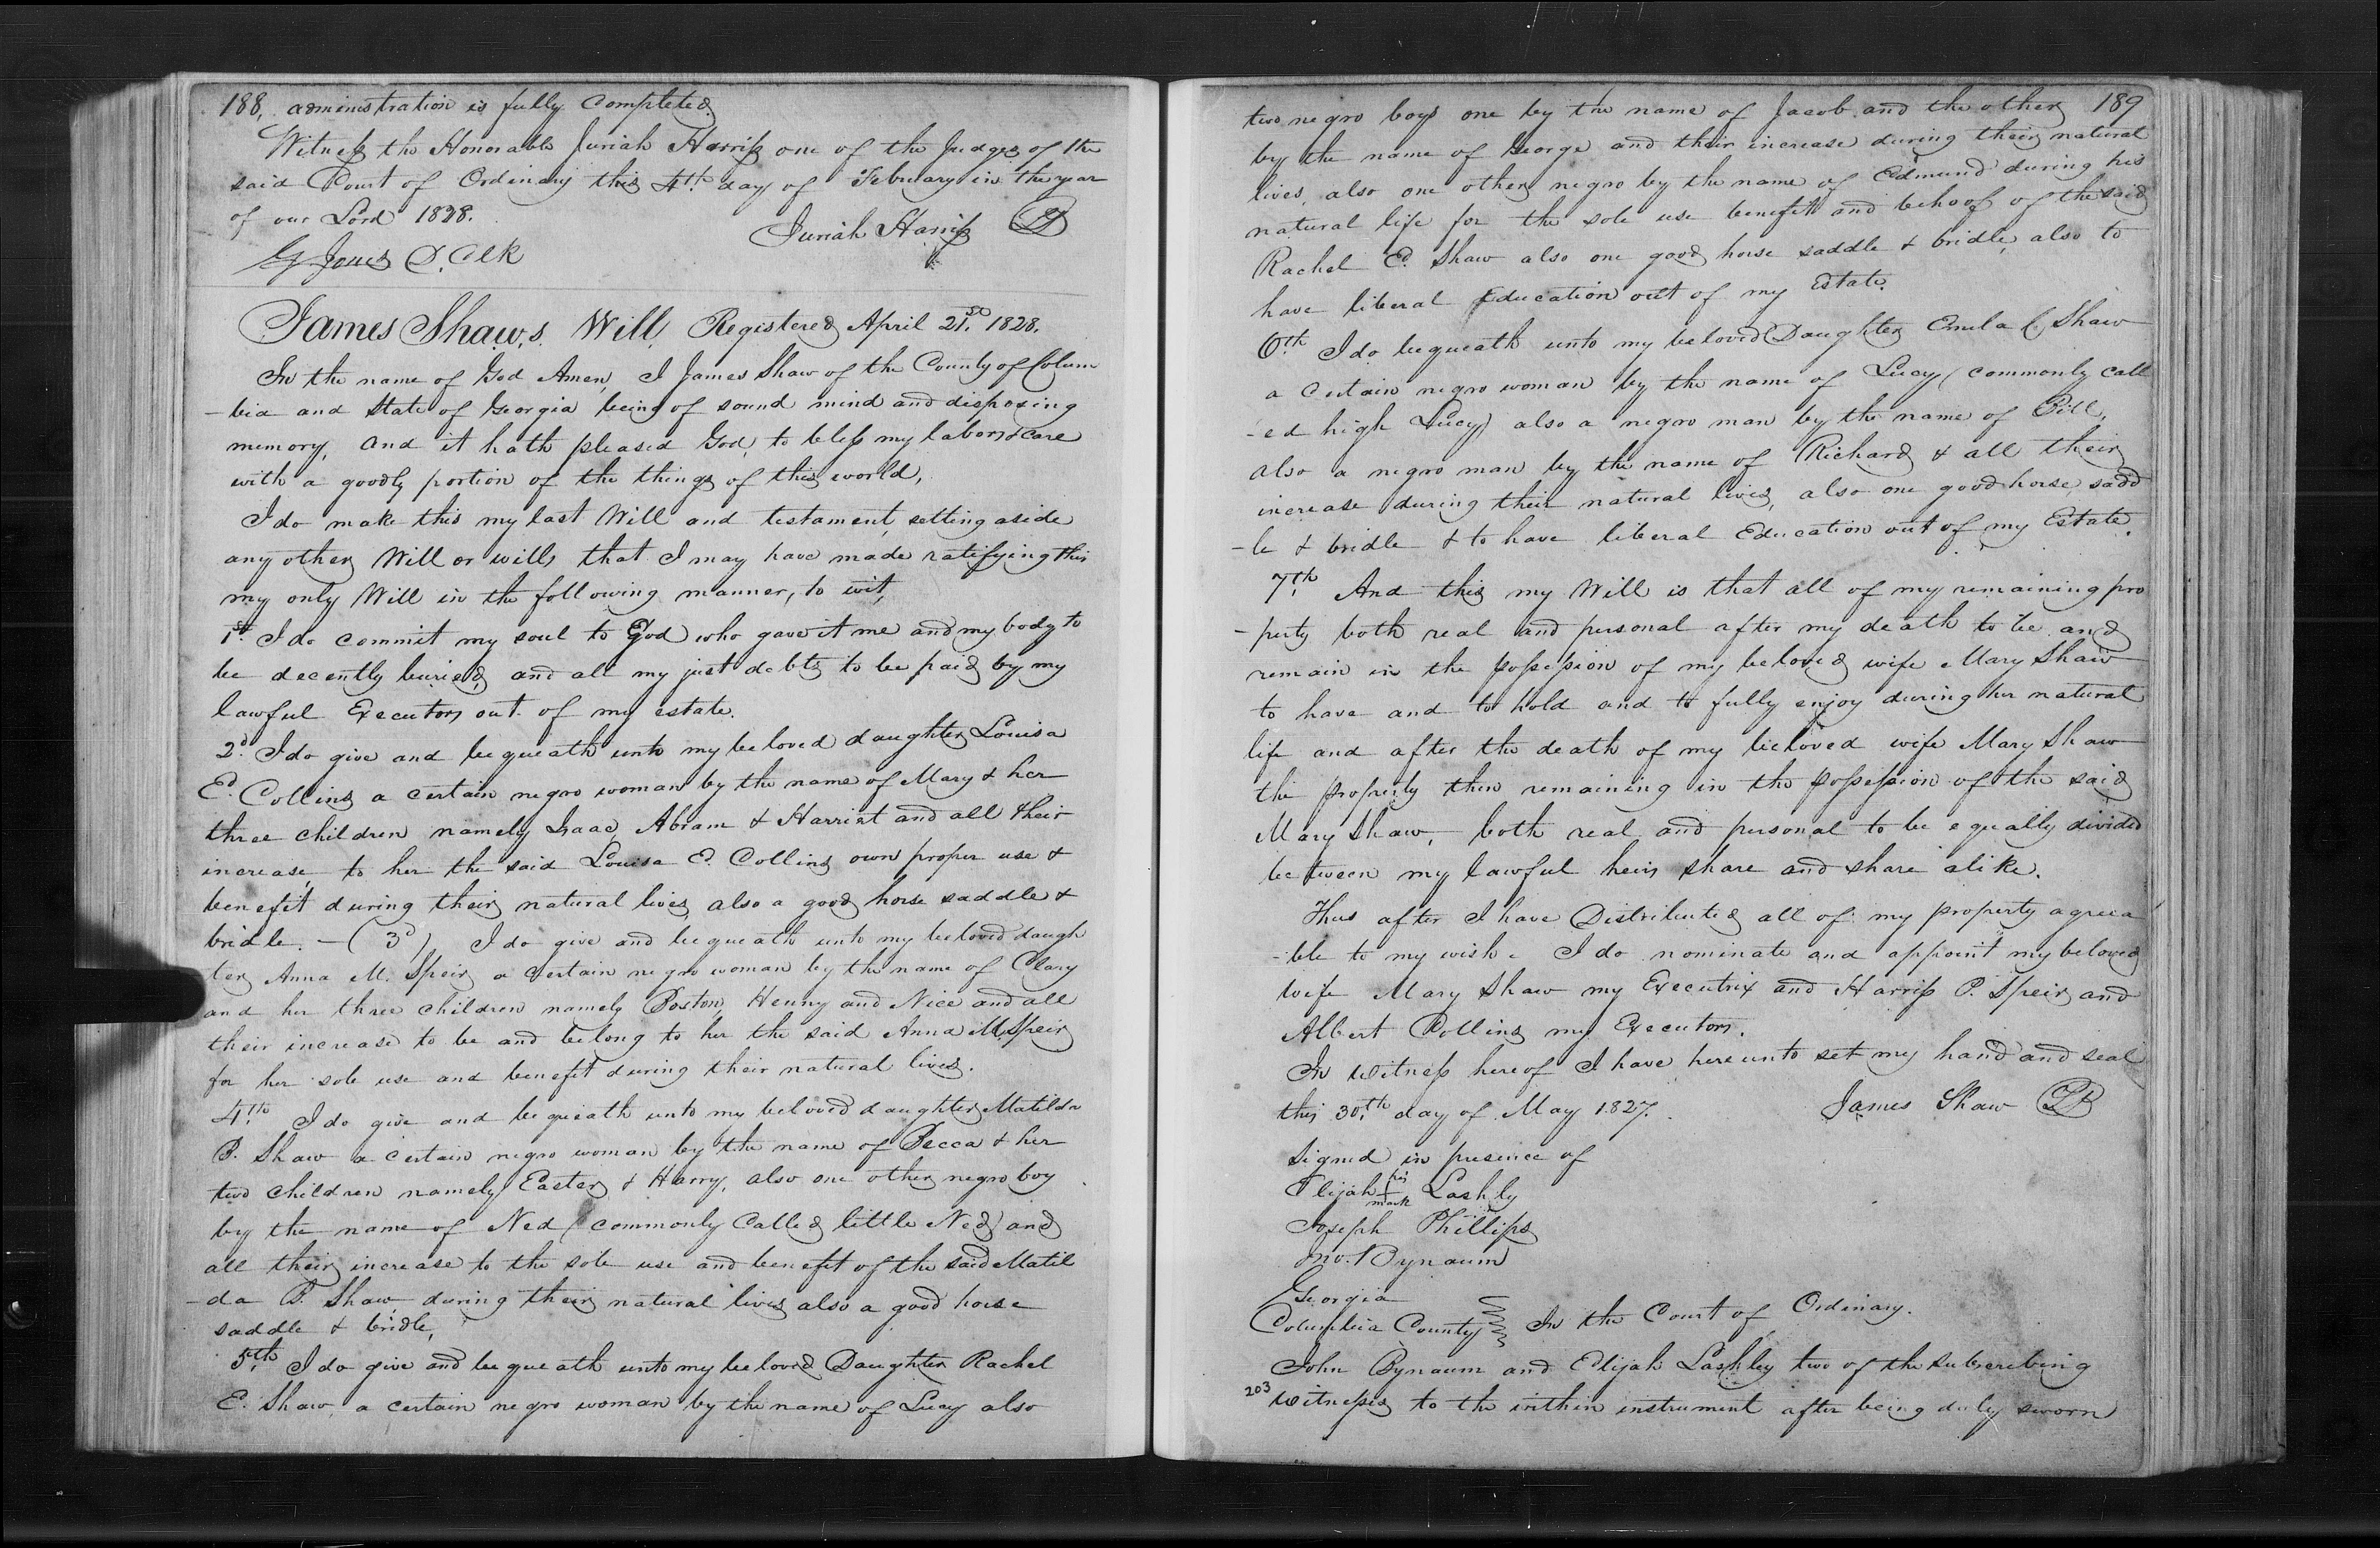 188, administration is fully Completed
Witness the Honorable Juriah Harriss one of the Judges of the
said Court of Ordinary this 4th day of Febuary in the year
of our Lord 1828.
Juriah Harriss
G Jones D. Clk
James Shaw,s Will Registered April 21st 1828.
In the name of God Amen, I James Shaw of the County of Colum
-bia and State of Georgia being of sound mind and disposing
memory, and it hath pleased God, to bless my labors & care
with a goodly portion of the things of this world,
I do make this my last Will and testament, setting aside
any other Will or wills that I may have made ratifying this
my only Will in the following manner, to wit,
1st I do commit my soul to God who gave it me and my body to
be decently buried, and all my just debts to be paid by my
lawful Executors out of my estate.
2d I do give and bequeath unto my beloved daughter Louisa
E. Collins a certain negro woman by the name of Mary & her
three children namely Isaac, Abram & Harriet and all their
increase, to her the said Louisa E. Collins own proper use &
benefit during their natural lives, also a good horse saddle &
bridle. - (3d) I do give and bequeath unto my beloved daugh
ter Anna M. Speir a certain negro woman by the name of Clary
and her three children namely Boston, Henny and Nice and all
their increase to be and belong to her the said Anna M. Speir
for her sole use and benefit during their natural lives.
4th I do give and bequeath unto my beloved daughter Matilda
B. Shaw a certain negro woman by the name of Becca & her
two children namely Easter & Harry, also one other negro boy
by the name of Ned (commonly Called little Ned) and
all their increase to the sole use and benefit of the said Matil
-da B. Shaw during their natural lives also a good horse
saddle & bridle,
5th I do give and bequeath unto my beloved Daughter Rachel
E. Shaw, a certain negro woman by the name of Lucy also
189
two negro boys one by the name of Jacob and the other
by the name of George and their increase during their natural
lives, also one other negro by the name of Edmund during his
natural life for the sole use benefit and behoof of the said
Rachel E. Shaw also one good horse saddle & bridle, also to
have liberal Education out of my Estate.
6th I do bequeath unto my beloved Daughter C. Shaw
a certain negro woman by the name of Lucy (commonly call
-ed high Lucy) also a negro man by the name of Bill,
also a negro man by the name of Richard & all their
increase during their natural lives, also one good horse, sadd
-le & bridle & to have liberal Education out of my Estate.
7th And this my Will is that all of my remaining pro
-perty both real and personal after my death to be and
remain in the possession of my beloved wife Mary Shaw
to have and to hold and to fully enjoy during her natural
life and after the death of my beloved wife Mary Shaw
the property then remaining in the possession of the said
Mary Shaw, both real and personal to be equally divided
between my lawful heirs share and share alike.
Thus after I have Distributed all of my property agreea
-ble to my wish. I do nominate and appoint my beloved
wife Mary Shaw my Executrix and Harriss P. Speir and
Albert Collins my Executors.
In Witness hereof I have hereunto set my hand and seal
this 30th day of May 1827.
James Shaw
Signed in presence of
Elijah his + mark Lashly
Joseph Phillips
Jno. Bynaum
Georgia
Columbia County In the Court of Ordinary.
John Bynaum and Elijah Lashley two of the subscribing
203
witnesses to the within instrument after being duly sworn